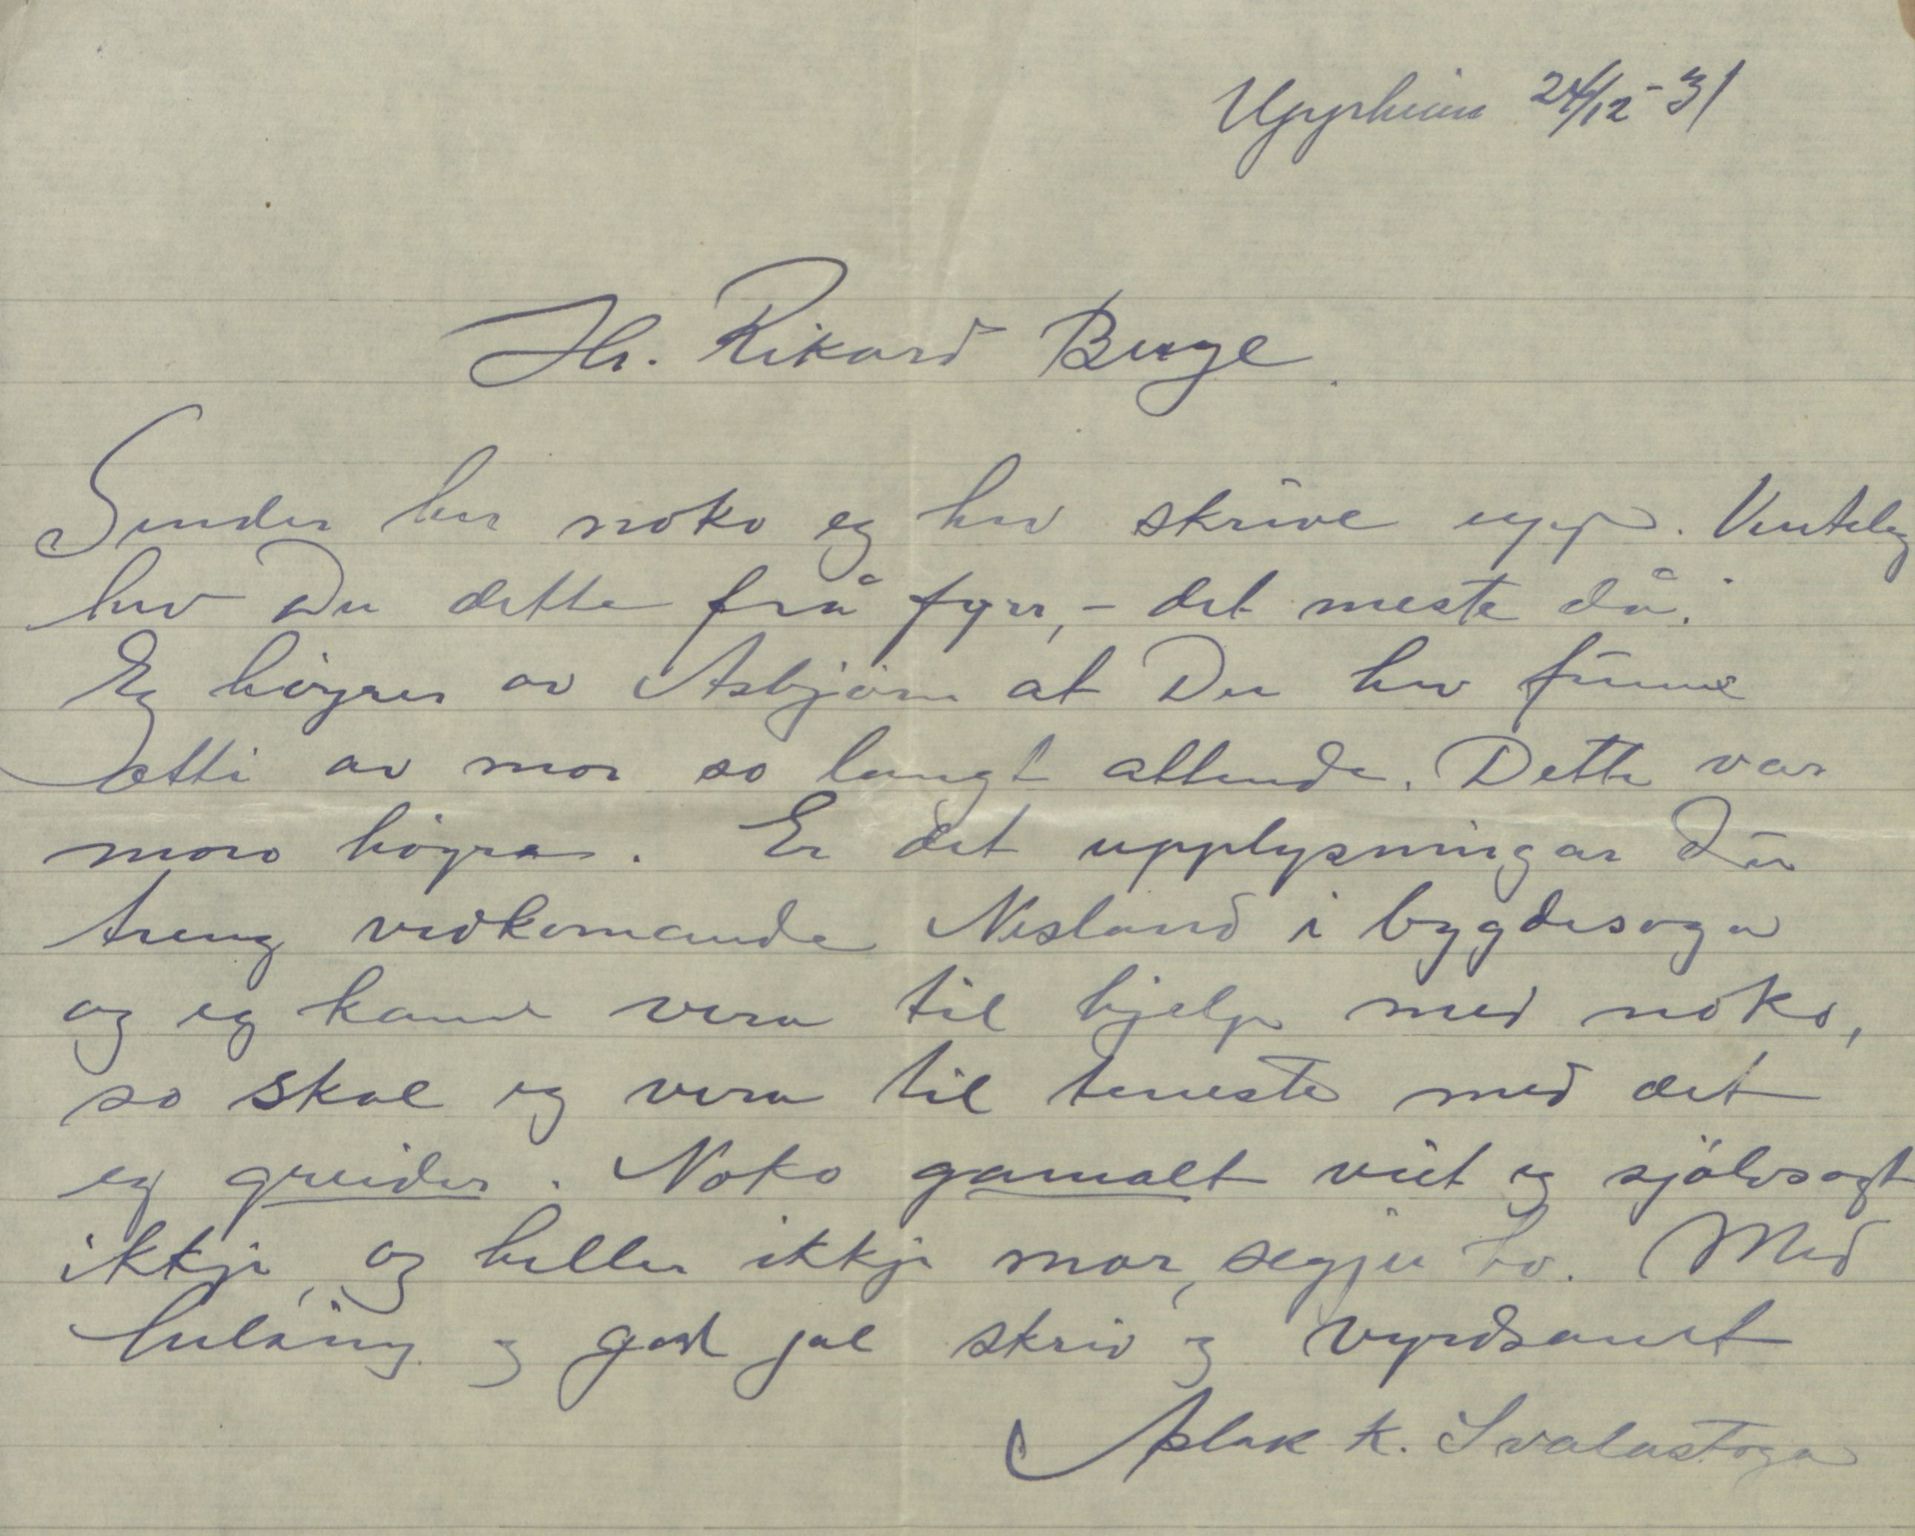 Uppheim 24/12-31
Hr. Rikard Berge.
Sender her noko eg hev skrive upp. Venteleg
hev Du dette frå fyrr, - det meste då.
Eg höyrer av Asbjörn at Du hev funne
ætti av mor so langt attende. Dette var
moro höyra. Er det upplysningar du
treng vedkomande Nesland i bygdesoga
og eg kann vera til hjelp med noko,
so skal eg vera til teneste med det
eg greider. Noko gamalt veit eg sjölvsagt
ikkje, og heller ikkje mor, segjer ho. Med
helsing og god jol skriv eg vyrdsamt
Aslak K. Svalastoga